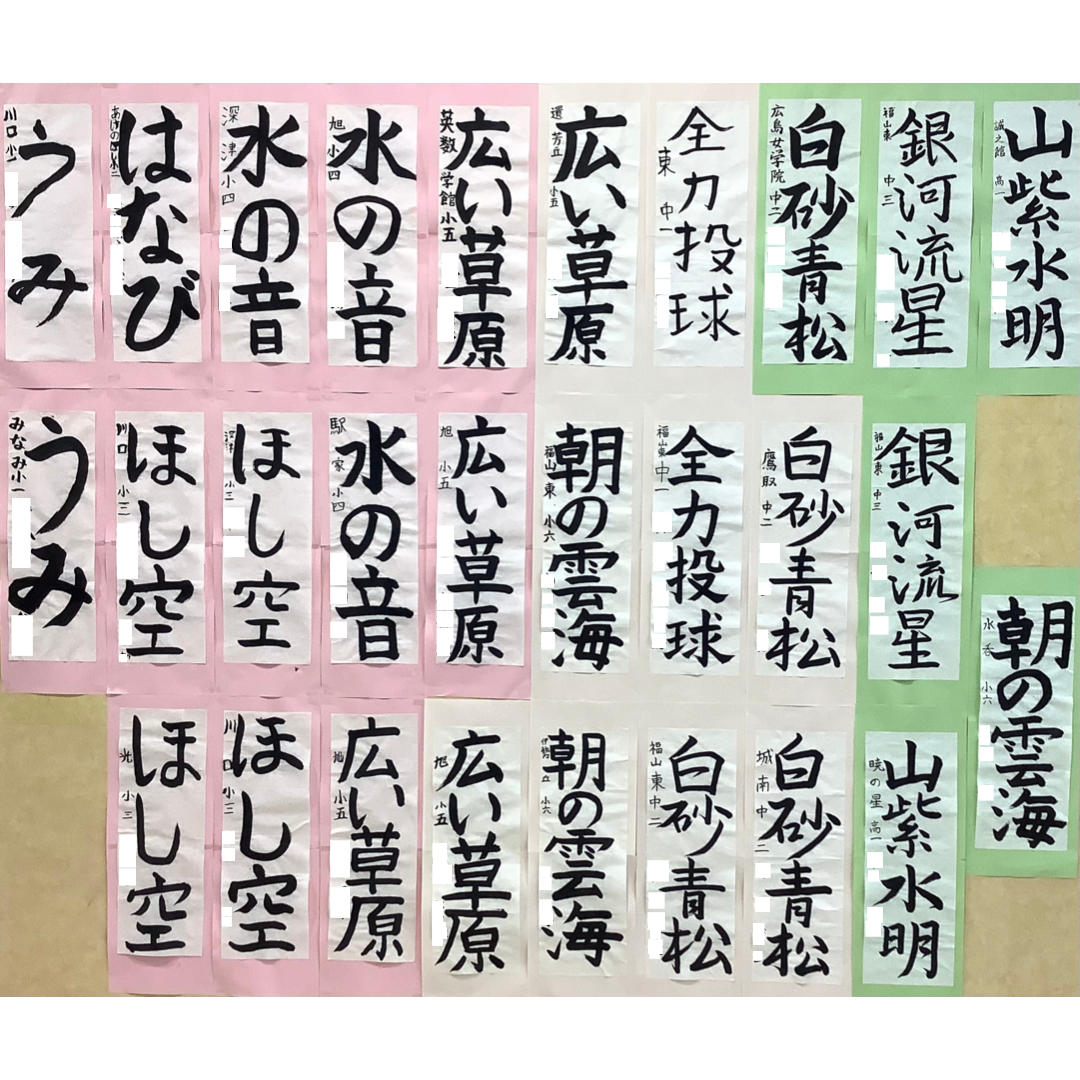 うみ
川口小二
はなび
あけのほし小二
水の音
深津小四
水の音
旭小四
広い草原
英数学館小五
広い草原
小五
全力投球
東中一
白砂青松
広島女学院中二
銀河流星
福山東中三
山紫水明
誠之館高一
うみ
みなみ小一
ほし空
川口小三
ほし空
小三
水の音
駅家小四
広い草原
旭小五
朝の雲海
福山東小六
全力投球
福山東中一
白砂青松
鷹取中二
銀河流星
福山東中三
朝の雲海
水呑小六
ほし空
光小三
ほし空
川口小三
広い草原
旭小五
広い草原
旭小五
朝の雲海
小六
白砂青松
福山東中二
白砂青松
城南中二
山紫水明
暁の星高一